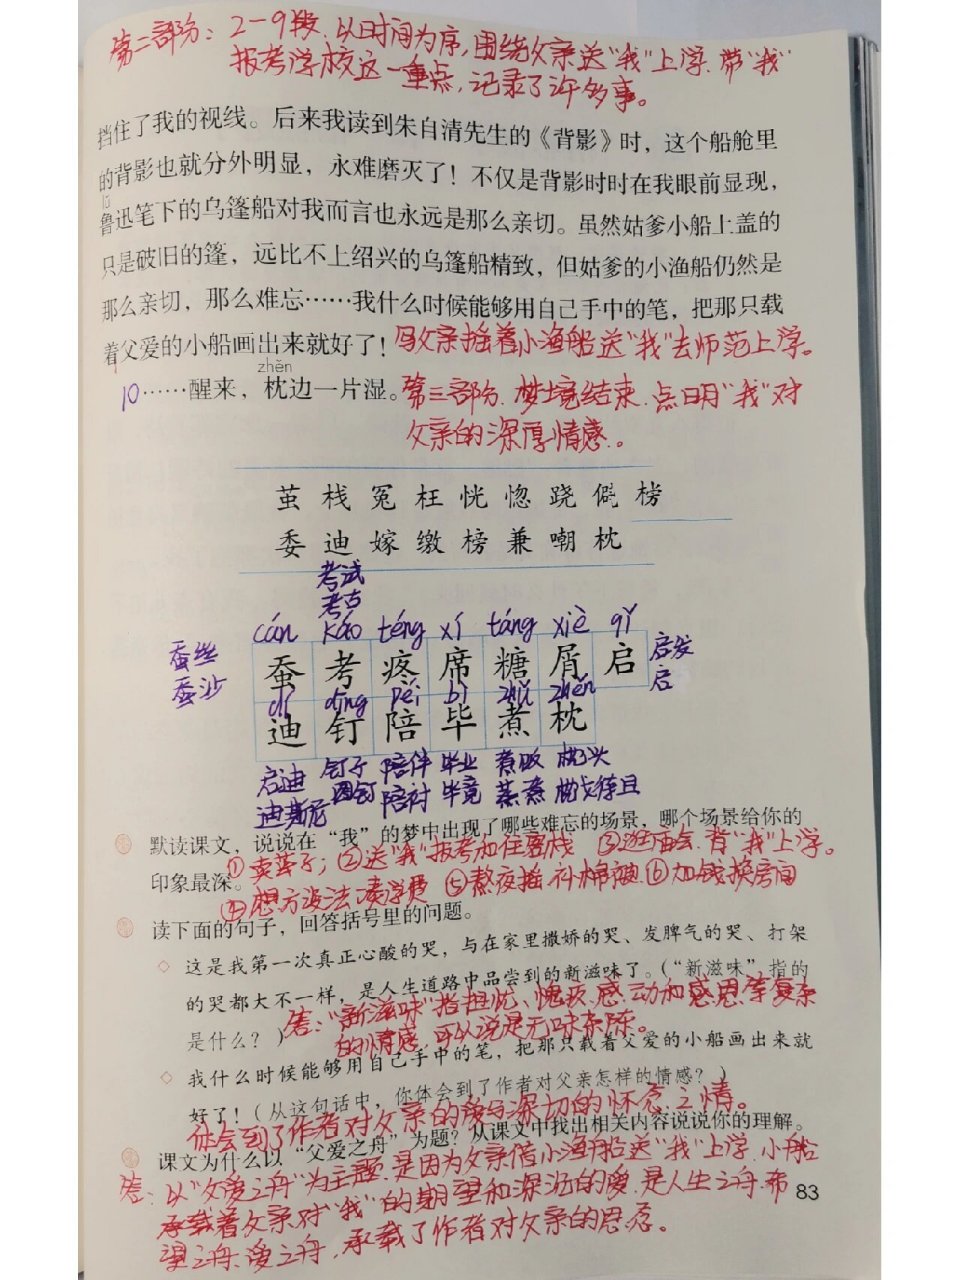 第二部分：2-9段.以时间为序,围绕父亲送"我"上学.带"我"
报考学校这一重点,记录了许多事。
挡住了我的视线。后来我读到朱自清先生的《背影》时，这个船舱里
的背影也就分外明显，永难磨灭了！不仅是背影时时在我眼前显现，
lǔ
鲁迅笔下的乌篷船对我而言也永远是那么亲切。虽然姑爹小船上盖的
只是破旧的篷，远比不上绍兴的乌篷船精致，但姑爹的小渔船仍然是
那么亲切，那么难忘……我什么时候能够用自己手中的笔，把那只载
着父爱的小船画出来就好了！写父亲摇着小渔船送"我"去师范上学。
zhěn
10……醒来，枕边一片湿。第三部分.梦境结束.点明"我"对
父亲的深厚情感。
茧 栈 冤 枉 恍 惚 跷 僻 榜
委 迪 嫁 缴 榜 兼 嘲 枕
考试
考古
cán kǎo téng xí táng xiè qǐ
蚕丝 蚕 考 疼 席 糖 屑 启 启发
蚕沙 启
dí dīng péi bì zhǔ zhěn
迪 钉 陪 毕 煮 枕
启迪 钉子 陪伴 毕业 煮饭 枕头
迪斯尼 图钉 陪衬 毕竟 蒸煮 枕戈待旦
默读课文，说说在“我”的梦中出现了哪些难忘的场景，哪个场景给你的
①卖茧子;②送"我"报考和住客栈 ③逛庙会.背"我"上学。
印象最深。
④想方设法凑学费 ⑤熬夜摇.补棉被⑥加钱换房间
读下面的句子，回答括号里的问题。
◇ 这是我第一次真正心酸的哭，与在家里撒娇的哭、发脾气的哭、打架
的哭都大不一样，是人生道路中品尝到的新滋味了。（“新滋味”指的
是什么？）
答："新滋味"指担忧、愧疚.感动和感恩等复杂
的情感,可以说是五味杂陈。
◇ 我什么时候能够用自己手中的笔，把那只载着父爱的小船画出来就
好了！（从这句话中，你体会到了作者对父亲怎样的情感？）
体会到了作者对父亲的爱与深切的怀念之情。
课文为什么以“父爱之舟”为题？从课文中找出相关内容说说你的理解。
答：以"父爱之舟"为主题.是因为父亲借小渔船送"我"上学.小船
承载着父亲对"我"的期望和深沉的爱.是人生之舟.希
望之舟、爱之舟,承载了作者对父亲的思念。
83